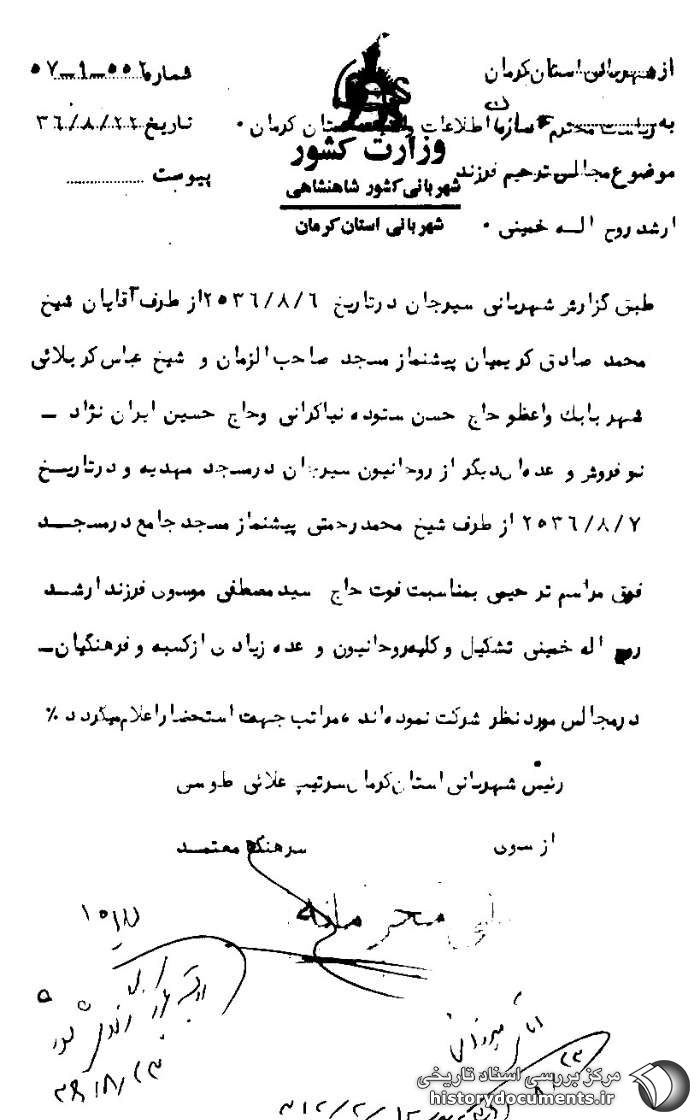 از شهربانی استان کرمان
شماره ۵۷-۹-۵۵۲
به ریاست محترم سازمان اطلاعات و امنیت استان کرمان ۰
تاریخ ۳۶/۸/۲۲
وزارت کشور
موضوع مجالس ترحیم فرزند
پیوست
شهربانی کشور شاهنشاهی
ارشد روح اله خمینی ۰
شهربانی استان کرمان
طبق گزارش شهربانی سیرجان درتاریخ ۲۵۳۶/۸/۶ از طرف آقایان شیخ
محمد صادق کریمیان پیشنماز مسجد صاحب الزمان و شیخ عباس کربلائی
شهر بابك واعظ و حاج حسن ستوده نیاکرانی و حاج حسین ایران نژاد ـ
نوفروش و عده‌ای دیگر از روحانیون سیرجان درمسجد مهدیه و درتاریخ
۲۵۳۶/۸/۷ از طرف شیخ محمد رحمتی پیشنماز مسجد جامع درمسجد
فوق مراسم ترحیمی بمناسبت فوت حاج سید مصطفی موسوی فرزند ارشد
روح اله خمینی تشکیل و کلیه روحانیون و عده زیادی از کسبه و فرهنگیان ـ
درمجالس مورد نظر شرکت نموده‌اند ، مراتب جهت استحضار اعلام میگردد ٪
رئیس شهربانی استان کرمان سرتیپ علائی طوسی
از سوی سرهنگ معتمد
محرمانه
مرکز بررسی اسناد تاریخی
historydocuments.ir